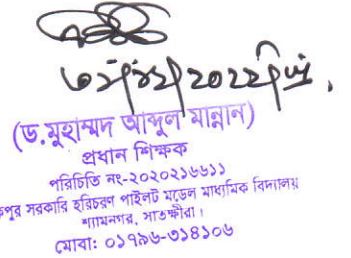 ২০২২ খ্রি.
(ড.মুহাম্মদ আব্দুল মান্নান)
প্রধান শিক্ষক
পরিচিতি নং-২০২০২১৬৬১১
পুর সরকারি হরিচরণ পাইলট মডেল মাধ্যমিক বিদ্যালয়
শ্যামনগর, সাতক্ষীরা।
মোবা: ০১৭৯৬-৩১৪১০৬